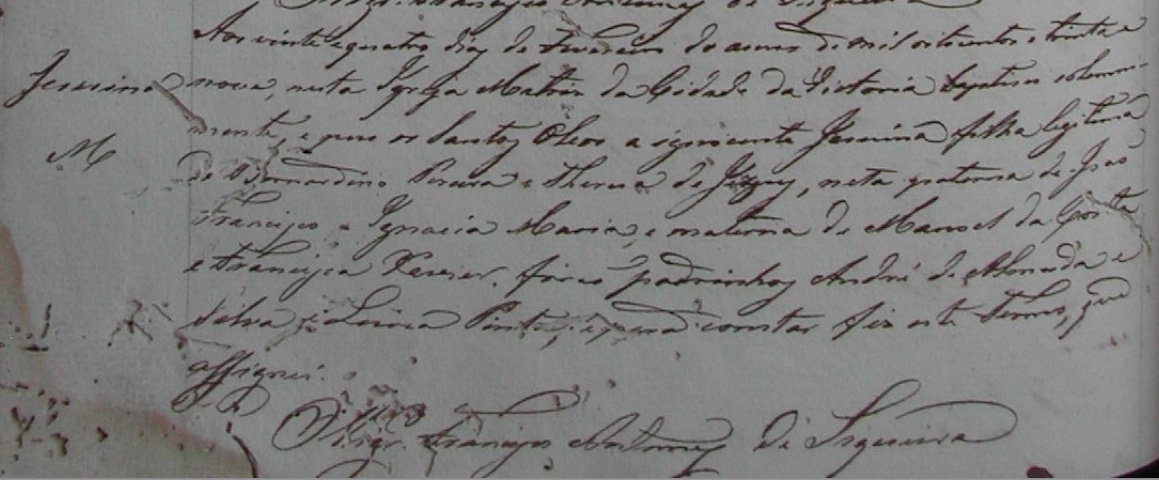 Aos vinte e quatro dias de Fevereiro do anno de mil oitocentos e trinta e
Jesuina nove, nesta Igreja Matriz da Cidade da Victoria baptisei solemne-
M mente, e pus os Santos Oleos a ignocente Jesuina filha legitima
de Bernardino Pereira e Theresa de Jezus, neta paterna de Joaõ
Francisco e Ignacia Maria, e materna de Manoel da Costa
e Francisca Xavier. foraõ padrinhos André de Almeida e
Silva e Luiza Pinto; e para constar fiz este termo, que
assignei.
O Vigr.º Francisco Antunes de Siqueira